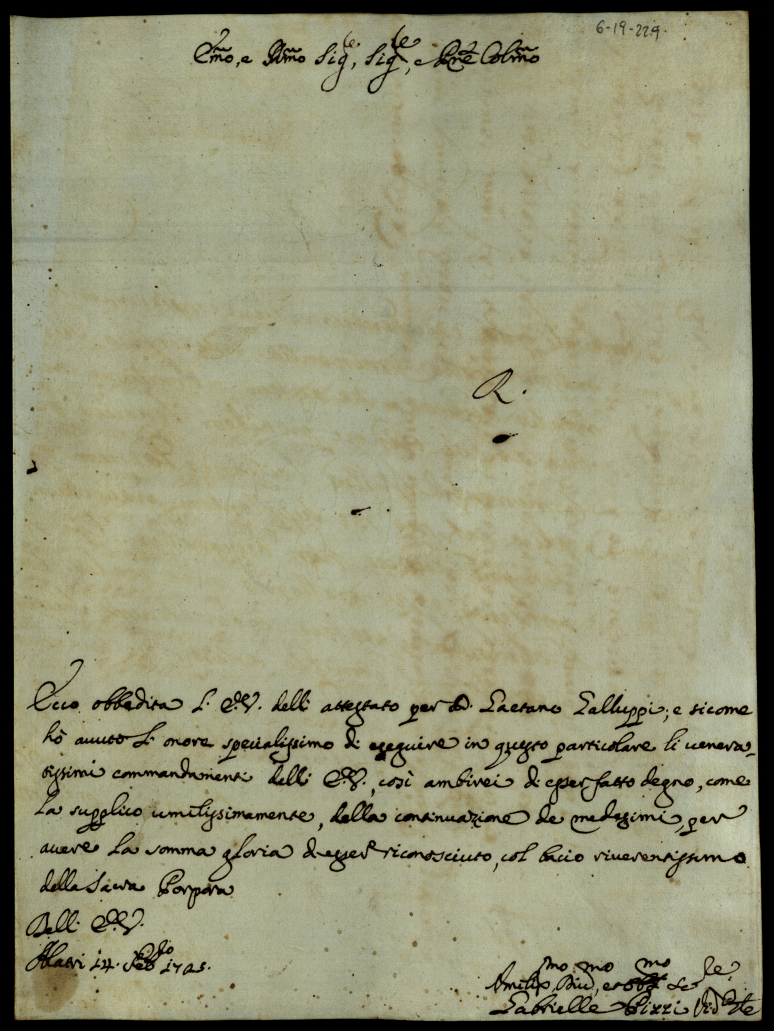 6-19-229.
Emo, e Rmo Sigre, Sigre, e Prne Colmo
R.
Ecco obbedita l'E.V. dell'attestato per D. Gaetano Galluppi; e sicome
hò avuto l'onore specialissimo di eseguire in questo particolare li venera-
tissimi commandamenti dell'E.V., così ambirei di esser fatto degno, come
la supplico umilissimamente, della continuazione de medesimi, per
avere la somma gloria di esser riconosciuto, col bacio riverentissimo
della Sacra Porpora
Dell'E.V.
Alatri 14. Febro 1725.
Umilissmo, Divmo, et Obbmo Se re
Gabrielle Pizzi